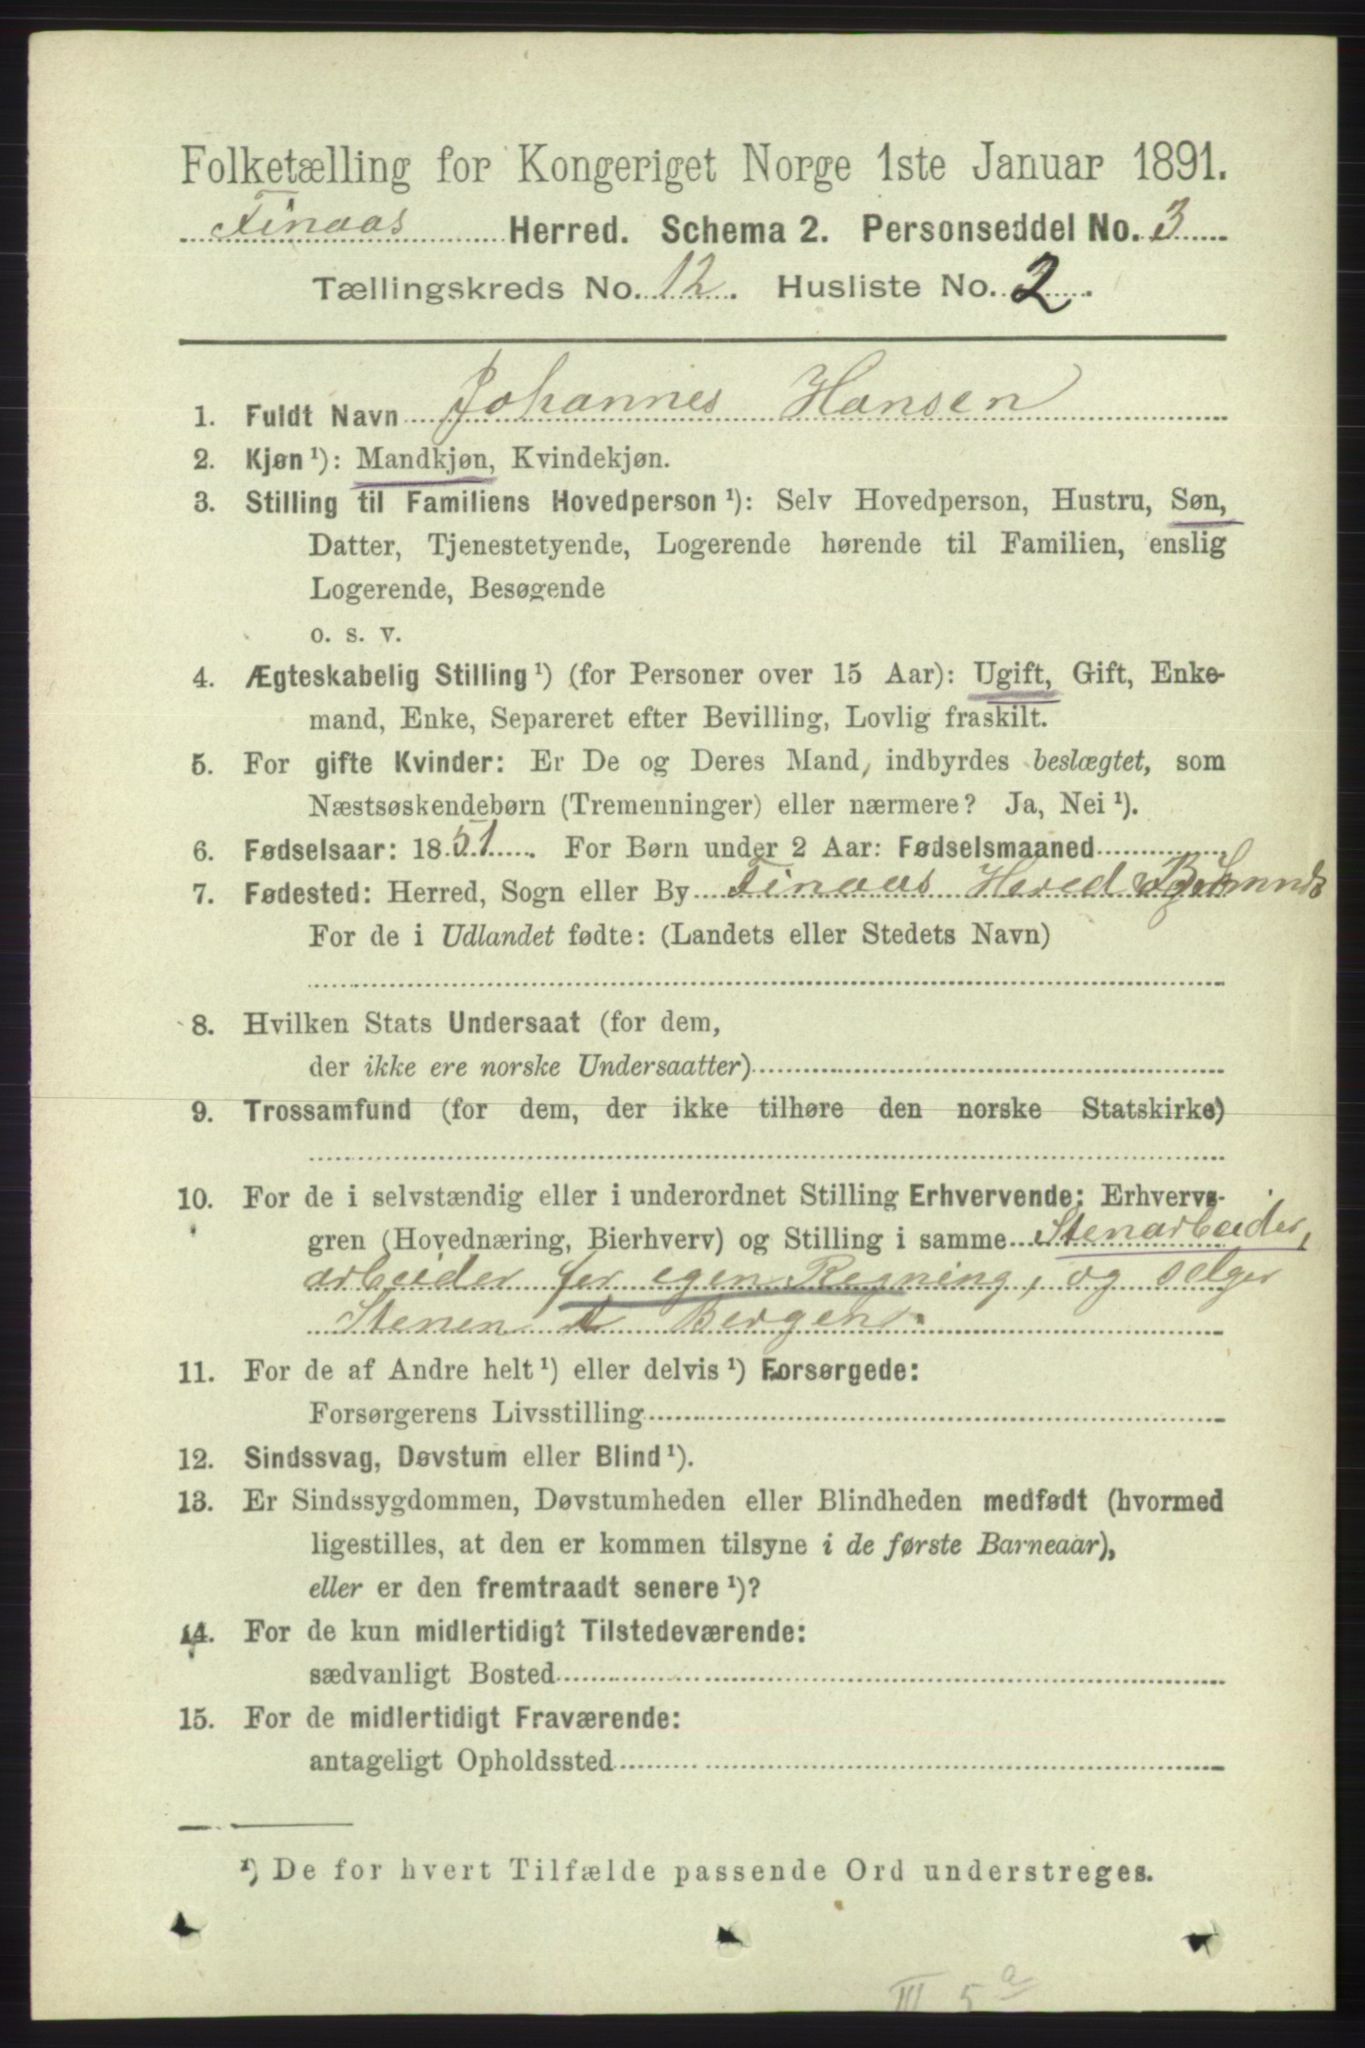 Folketælling for Kongeriget Norge 1ste Januar 1891.
Finaas Herred. Schema 2. Personseddel No. 3
Tællingskreds No. 12. Husliste No. 2.
1. Fuldt Navn Johannes Hansen
2. Kjøn ¹): Mandkjøn, Kvindekjøn.
3. Stilling til Familiens Hovedperson ¹): Selv Hovedperson, Hustru, Søn,
Datter, Tjenestetyende, Logerende hørende til Familien, enslig
Logerende, Besøgende
o. s. v.
4. Ægteskabelig Stilling ¹) (for Personer over 15 Aar): Ugift, Gift, Enke-
mand, Enke, Separeret efter Bevilling, Lovlig fraskilt.
5. For gifte Kvinder: Er De og Deres Mand, indbyrdes beslægtet, som
Næstsøskendebørn (Tremenninger) eller nærmere? Ja, Nei ¹).
6. Fødselsaar: 1851. For Børn under 2 Aar: Fødselsmaaned
7. Fødested: Herred, Sogn eller By Finaas Hered
For de i Udlandet fødte: (Landets eller Stedets Navn)
8. Hvilken Stats Undersaat (for dem,
der ikke ere norske Undersaatter)
9. Trossamfund (for dem, der ikke tilhøre den norske Statskirke)
10. For de i selvstændig eller i underordnet Stilling Erhvervende: Erhvervs-
gren (Hovednæring, Bierhverv) og Stilling i samme Stenarbeider,
arbeider for egen Regning, og selger
Stenen Bergen.
11. For de af Andre helt ¹) eller delvis ¹) Forsørgede:
Forsørgerens Livsstilling
12. Sindssvag, Døvstum eller Blind ¹).
13. Er Sindssygdommen, Døvstumheden eller Blindheden medfødt (hvormed
ligestilles, at den er kommen tilsyne i de første Barneaar),
eller er den fremtraadt senere ¹)?
14. For de kun midlertidigt Tilstedeværende:
sædvanligt Bosted
15. For de midlertidigt Fraværende:
antageligt Opholdssted
¹) De for hvert Tilfælde passende Ord understreges.
III 5 a